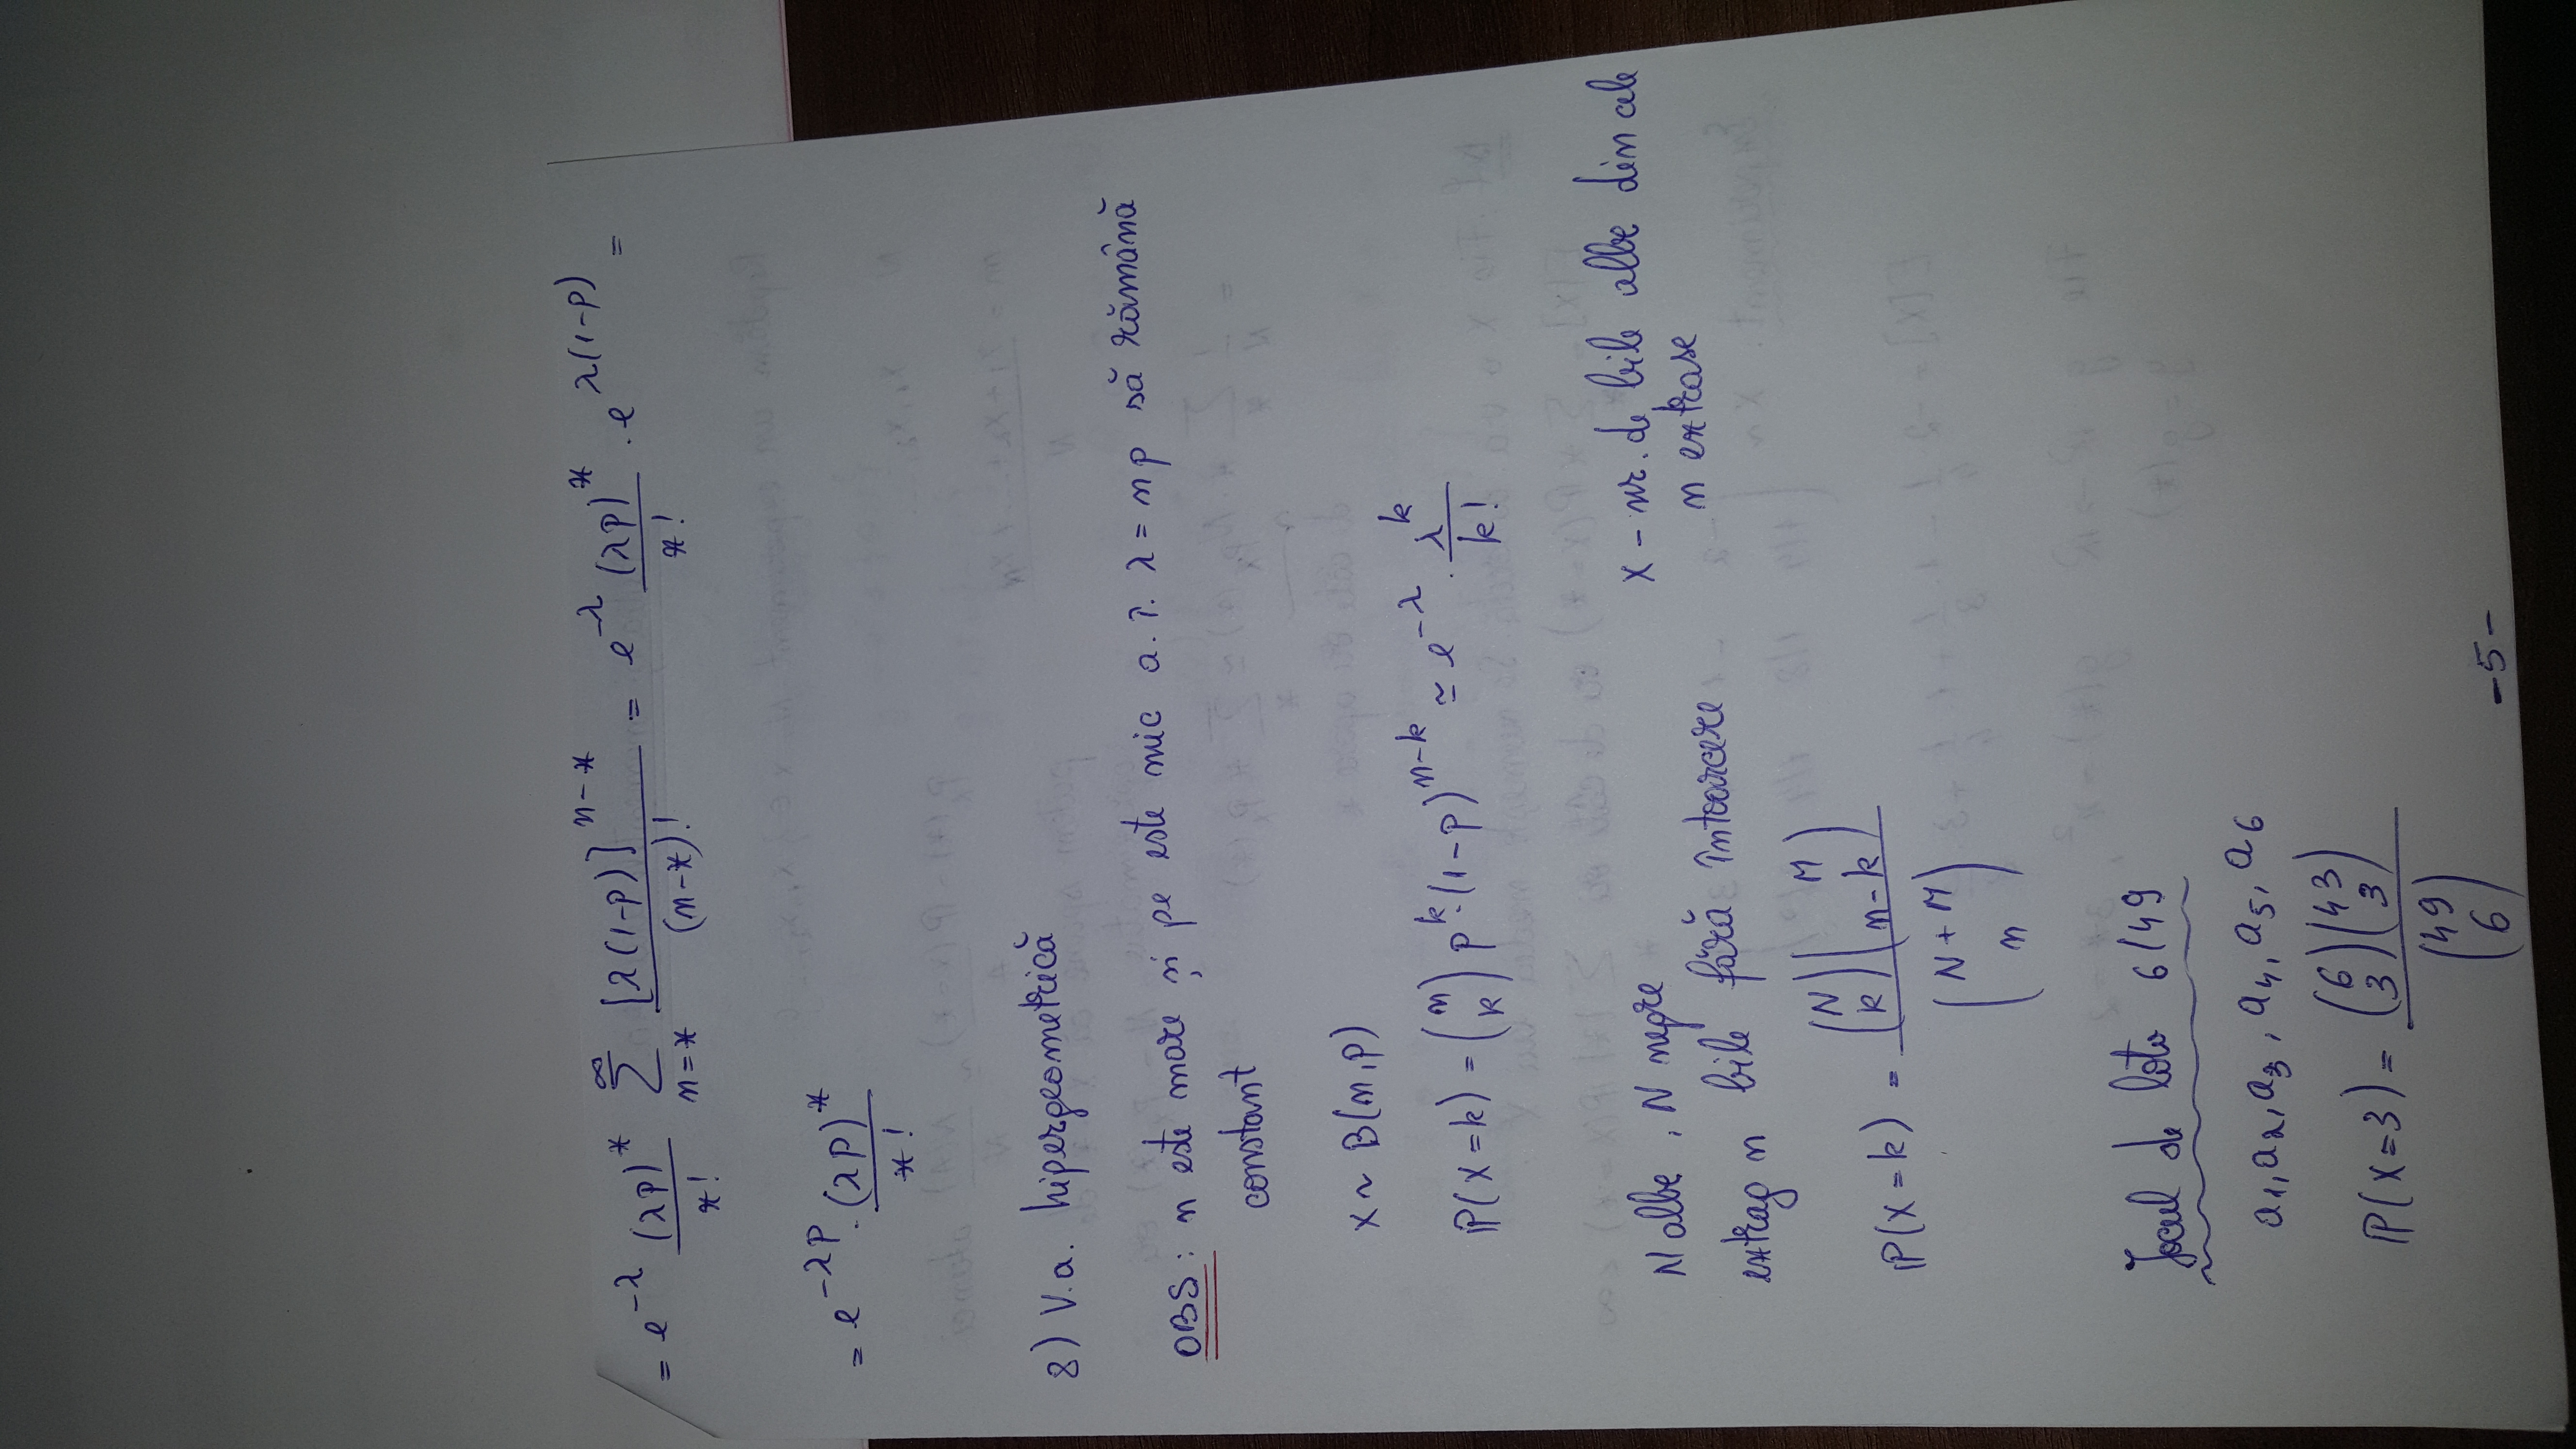 = e^{-λ} \frac{(λp)^x}{x!} \sum_{n=x}^{∞} \frac{[λ(1-p)]^{n-x}}{(n-x)!} = e^{-λ} \frac{(λp)^x}{x!} · e^{λ(1-p)} =
= e^{-λp} · \frac{(λp)^x}{x!}
8) V.a. hipergeometrică
OBS: n este mare și pe este mic a.î. λ = np să rămână
constant
X ~ B(n,p)
ℙ(X=k) = \binom{n}{k} p^k · (1-p)^{n-k} ≃ e^{-λ} · \frac{λ^k}{k!}
N albe, N negre
extrag n bile fără întoarcere
X – nr. de bile albe din cele
n extrase
ℙ(X=k) = \frac{\binom{N}{k} \binom{M}{n-k}}{\binom{N+M}{n}}
Jocul de loto 6/49
a_1, a_2, a_3, a_4, a_5, a_6
ℙ(X=3) = \frac{\binom{6}{3} \binom{43}{3}}{\binom{49}{6}}
-5-